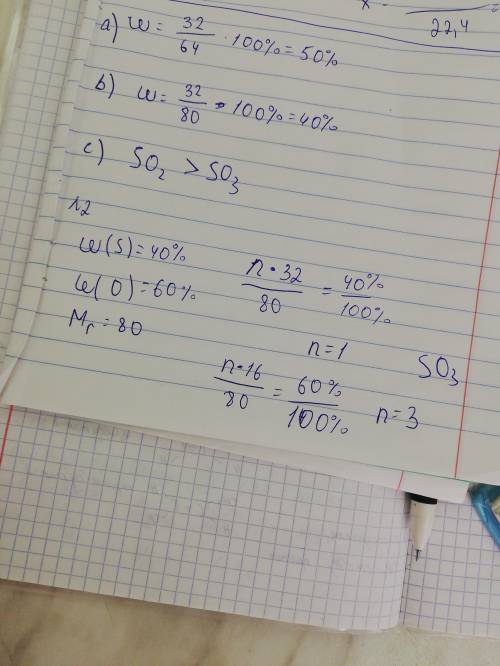 x
22,4
a) w = 32/64 · 100% = 50%
b) w = 32/80 · 100% = 40%
c) SO₂ > SO₃
12
w(S) = 40%
w(O) = 60%
Mr = 80
n·32/80 = 40%/100%
n = 1
n·16/80 = 60%/100%
n = 3
SO₃